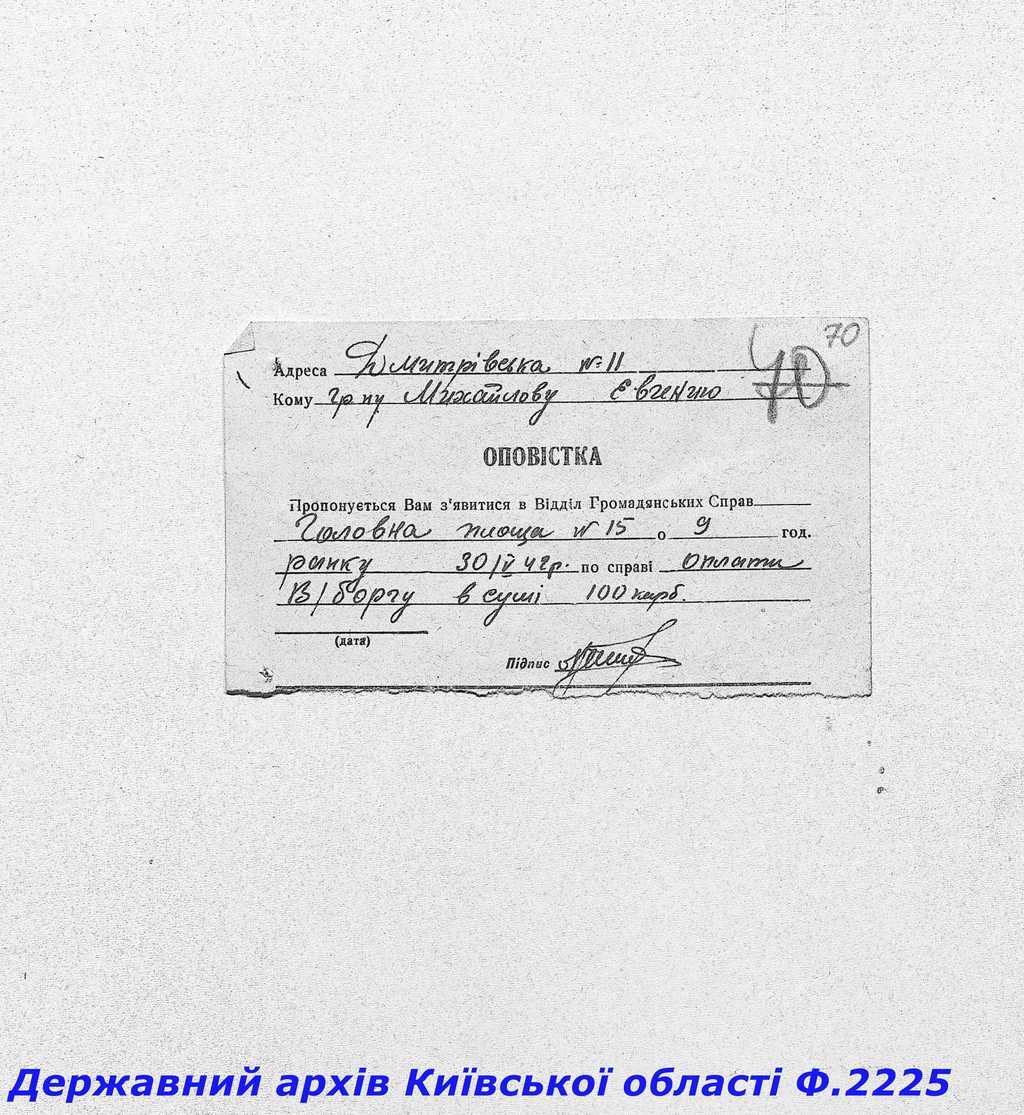 70
70
Адреса Дмитрівська № 11
Кому гр-ну Михайлову Євгенію
ОПОВІСТКА
Пропонується Вам з'явитися в Відділ Громадянських Справ
Головна площа № 15 о 9 год.
ранку 30/V 42р. по справі оплати
В/боргу в сумі 100 карб.
(дата)
Підпис
Державний архів Київської області Ф.2225